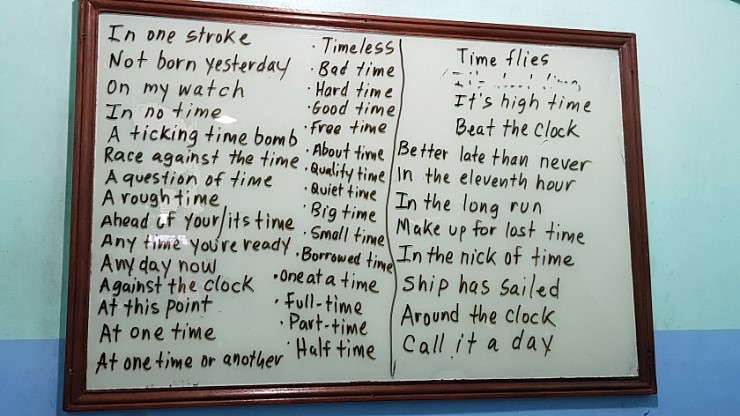 In one stroke
Not born yesterday
On my watch
In no time
A ticking time bomb
Race against the time
A question of time
A rough time
Ahead of your/its time
Any time you're ready
Any day now
Against the clock
At this point
At one time
At one time or another
· Timeless
· Bad time
· Hard time
· Good time
· Free time
· About time
· Quality time
· Quiet time
· Big time
· Small time
· Borrowed time
· One at a time
· Full-time
· Part-time
· Half time
Time flies
It's high time
Beat the clock
Better late than never
In the eleventh hour
In the long run
Make up for lost time
In the nick of time
Ship has sailed
Around the clock
Call it a day